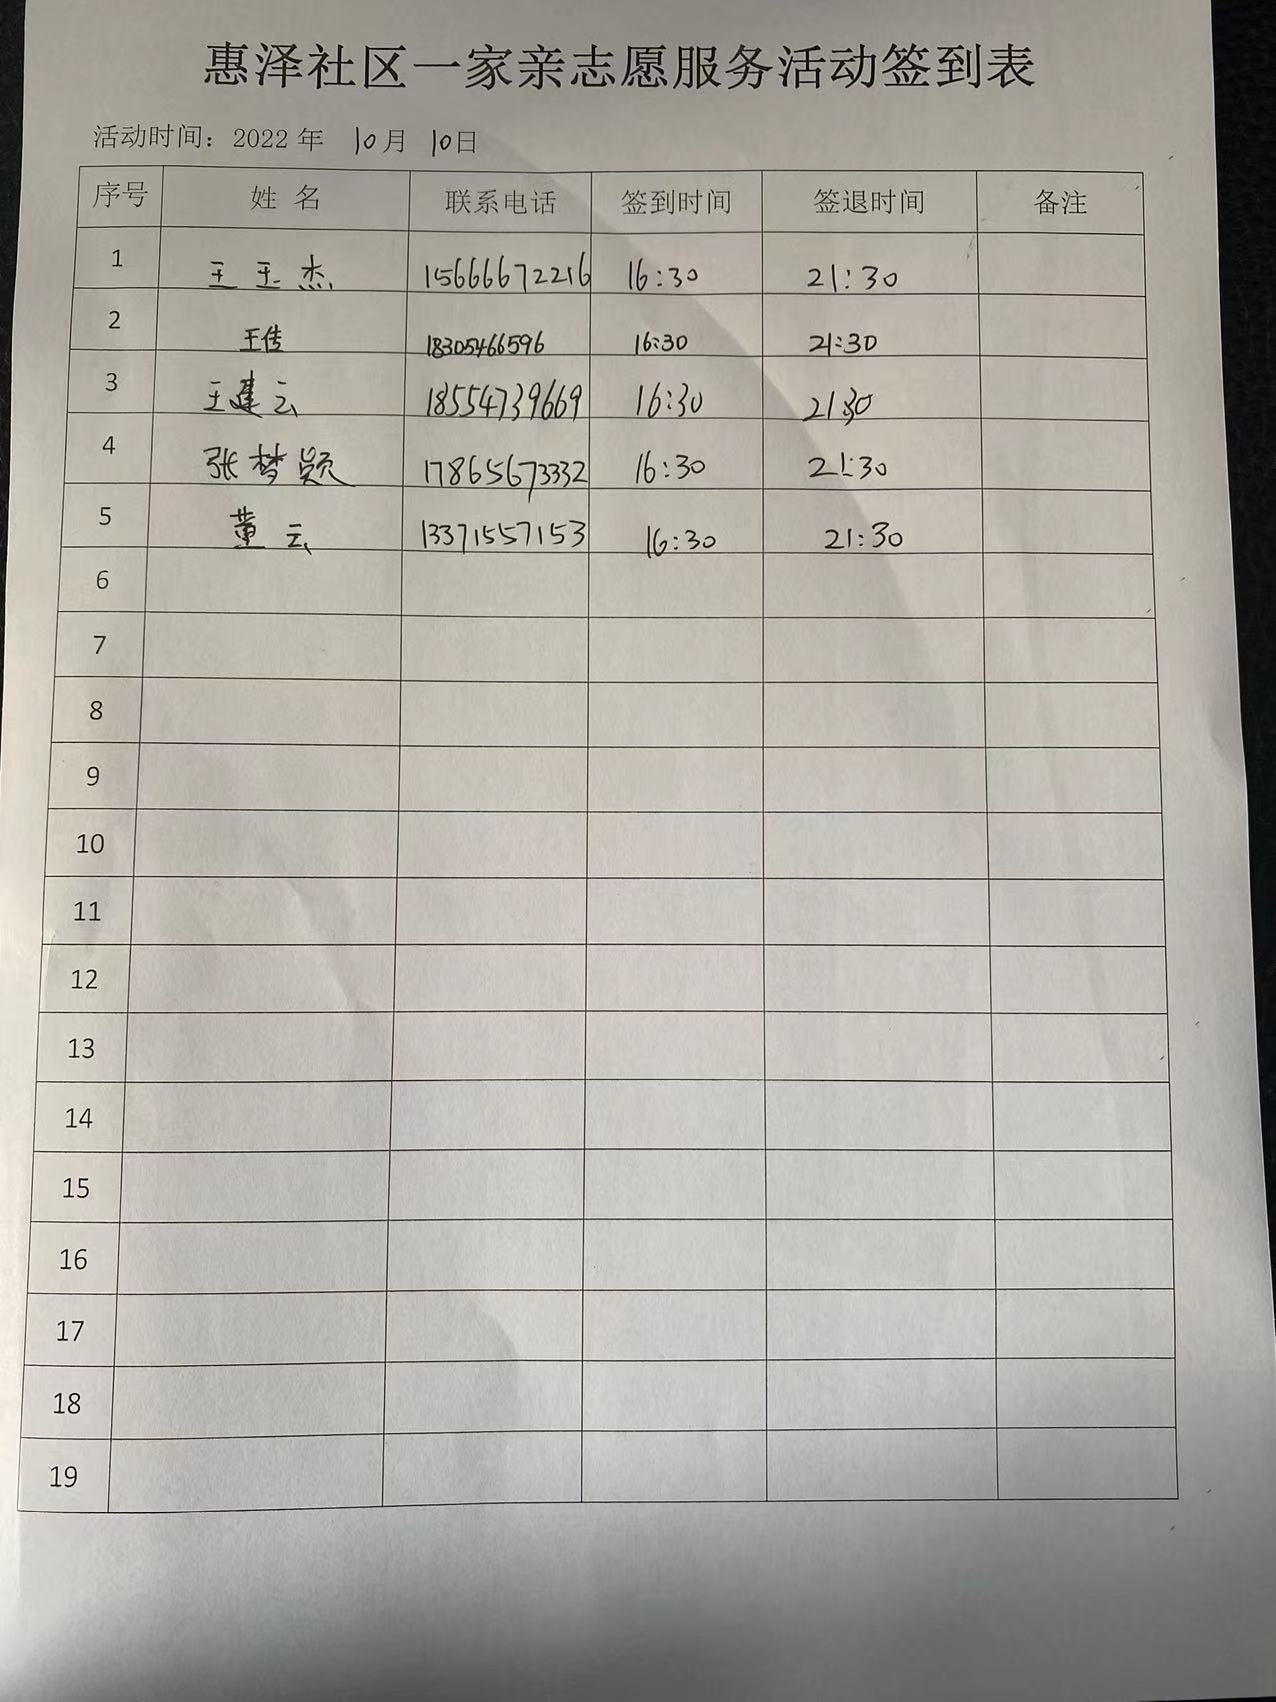 惠泽社区一家亲志愿服务活动签到表
活动时间：2022 年 10月 10日
序号 姓 名 联系电话 签到时间 签退时间 备注
1 王玉杰 15666672216 16:30 21:30
2 王佳 18305466596 16:30 21:30
3 王建云 18554739669 16:30 21:30
4 张梦颖 17865673332 16:30 21:30
5 董云 13371557153 16:30 21:30
6
7
8
9
10
11
12
13
14
15
16
17
18
19